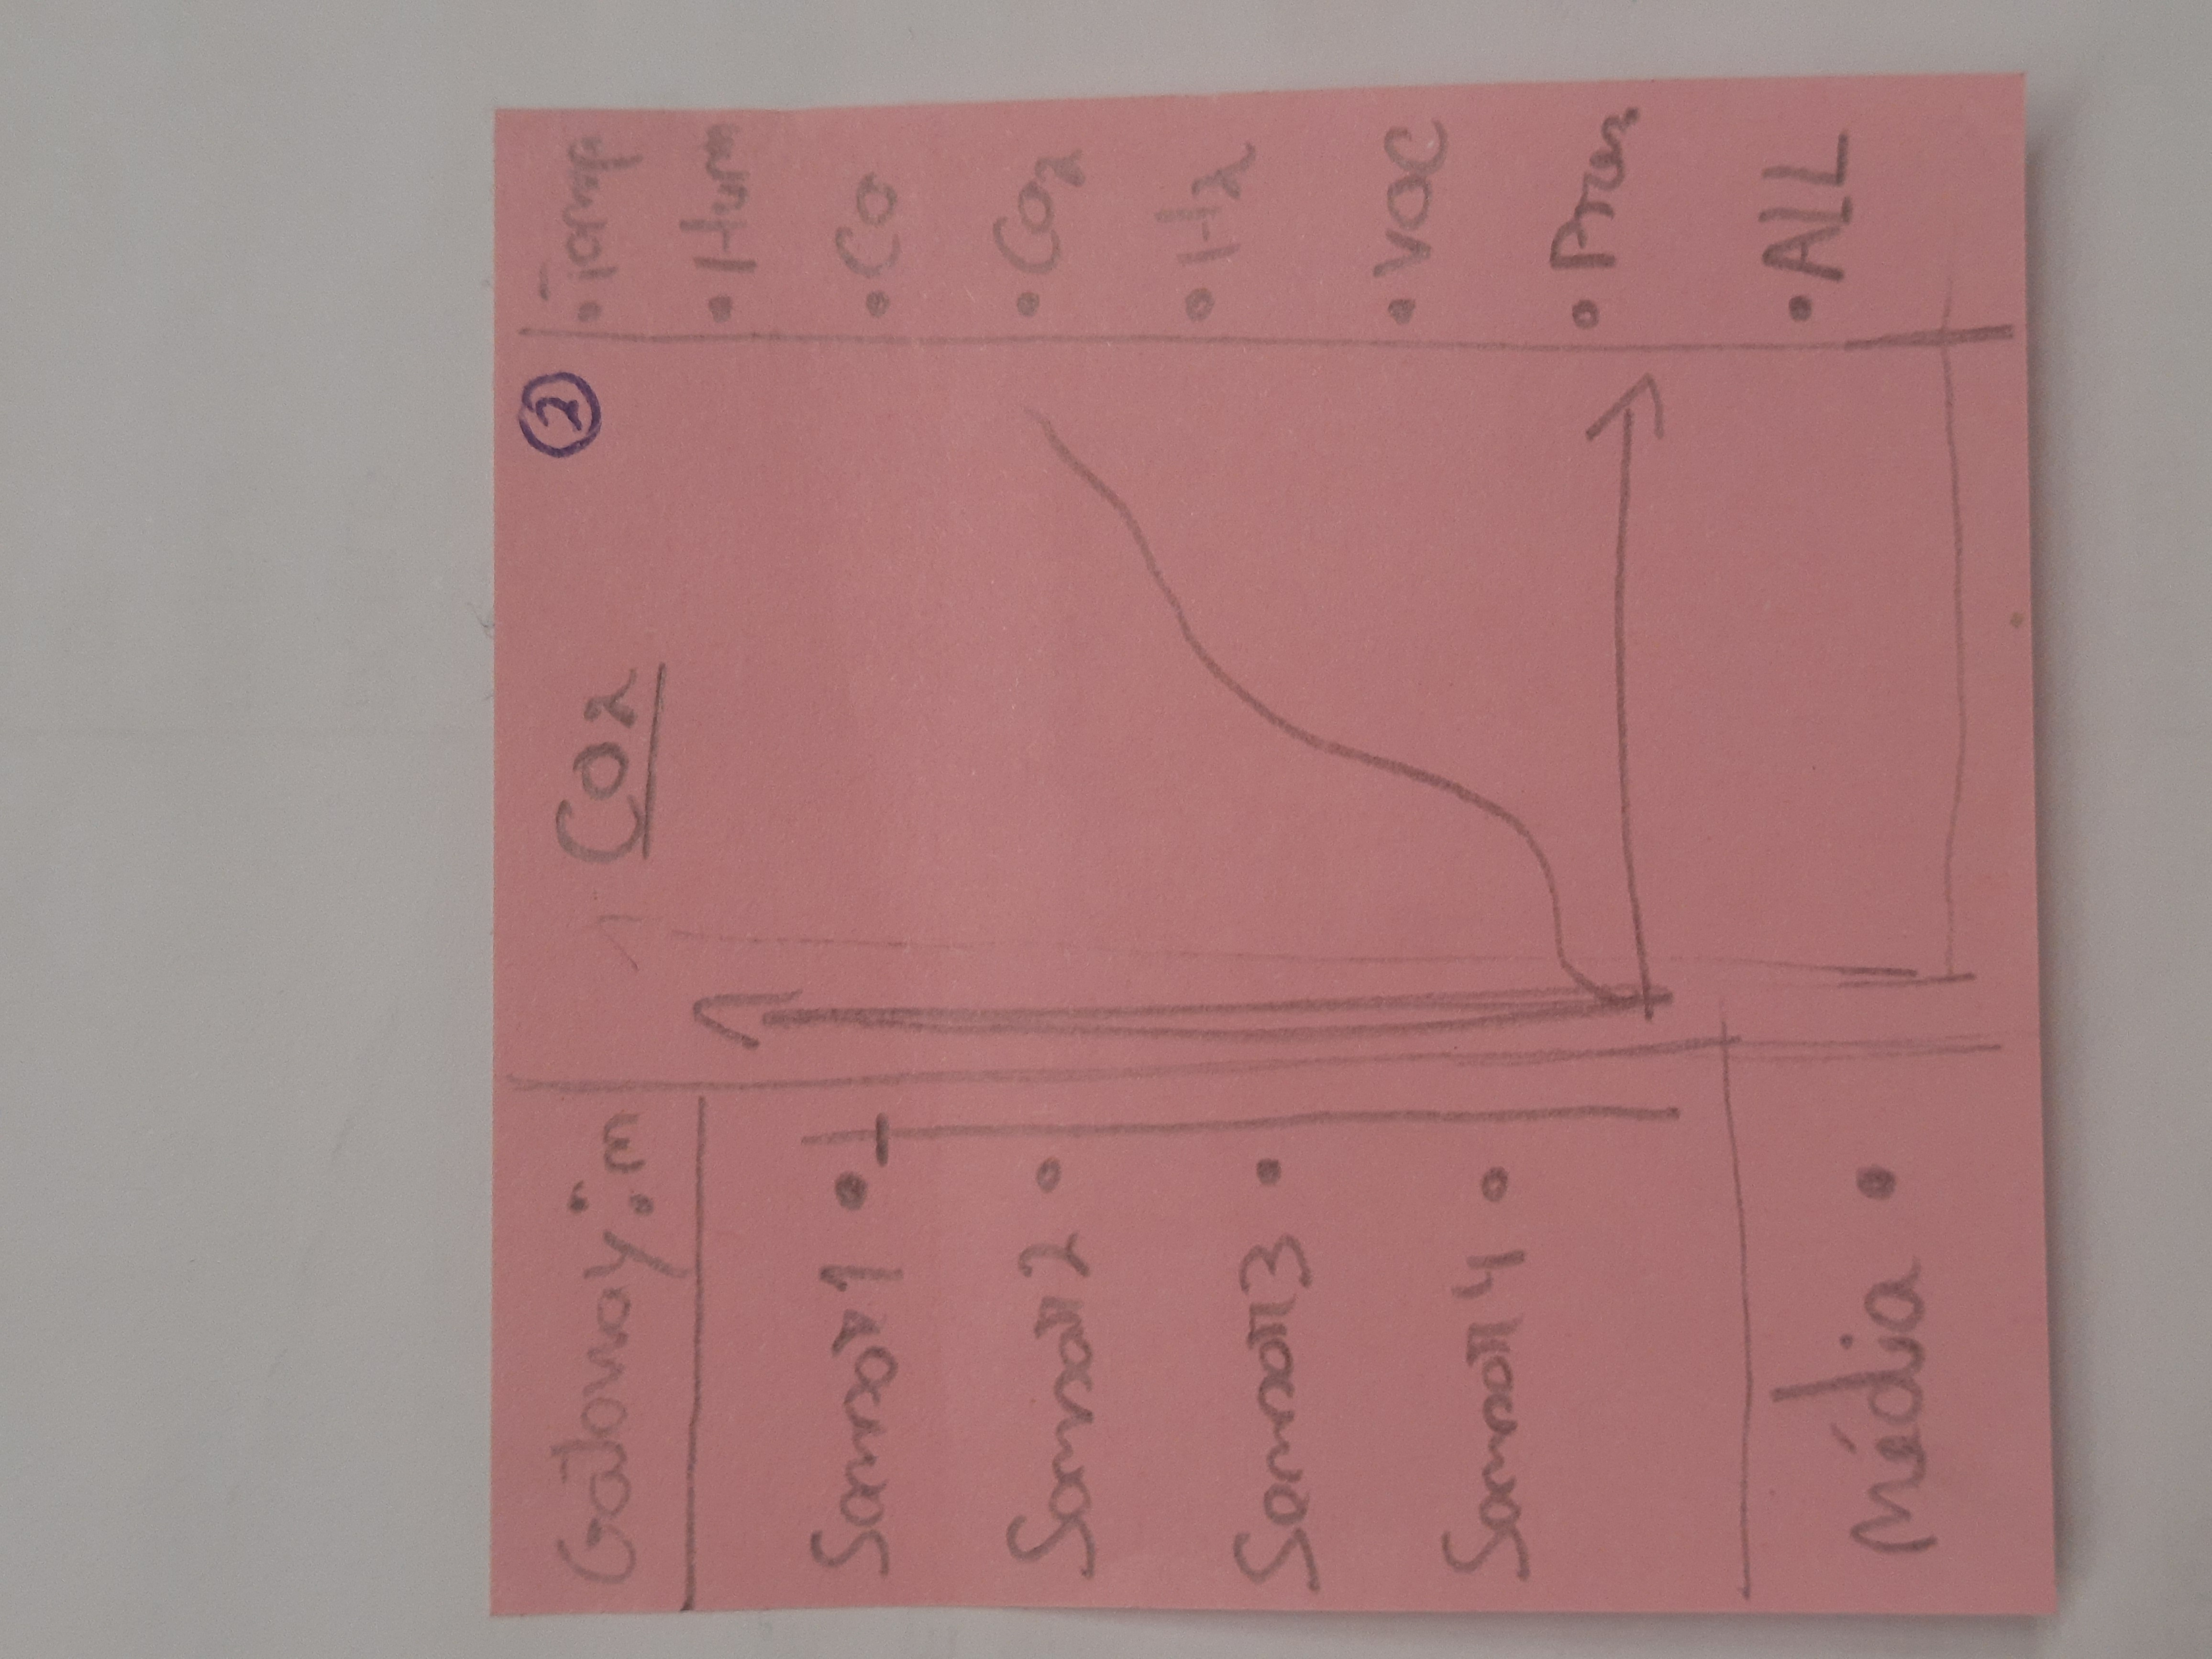 Gateway : n
Sensor 1 •
Sensor 2 •
Sensor 3 •
Sensor 4 •
Média •
CO2
2
• Temp
• Hum
• CO
• CO2
• H2
• VOC
• Pres.
• ALL